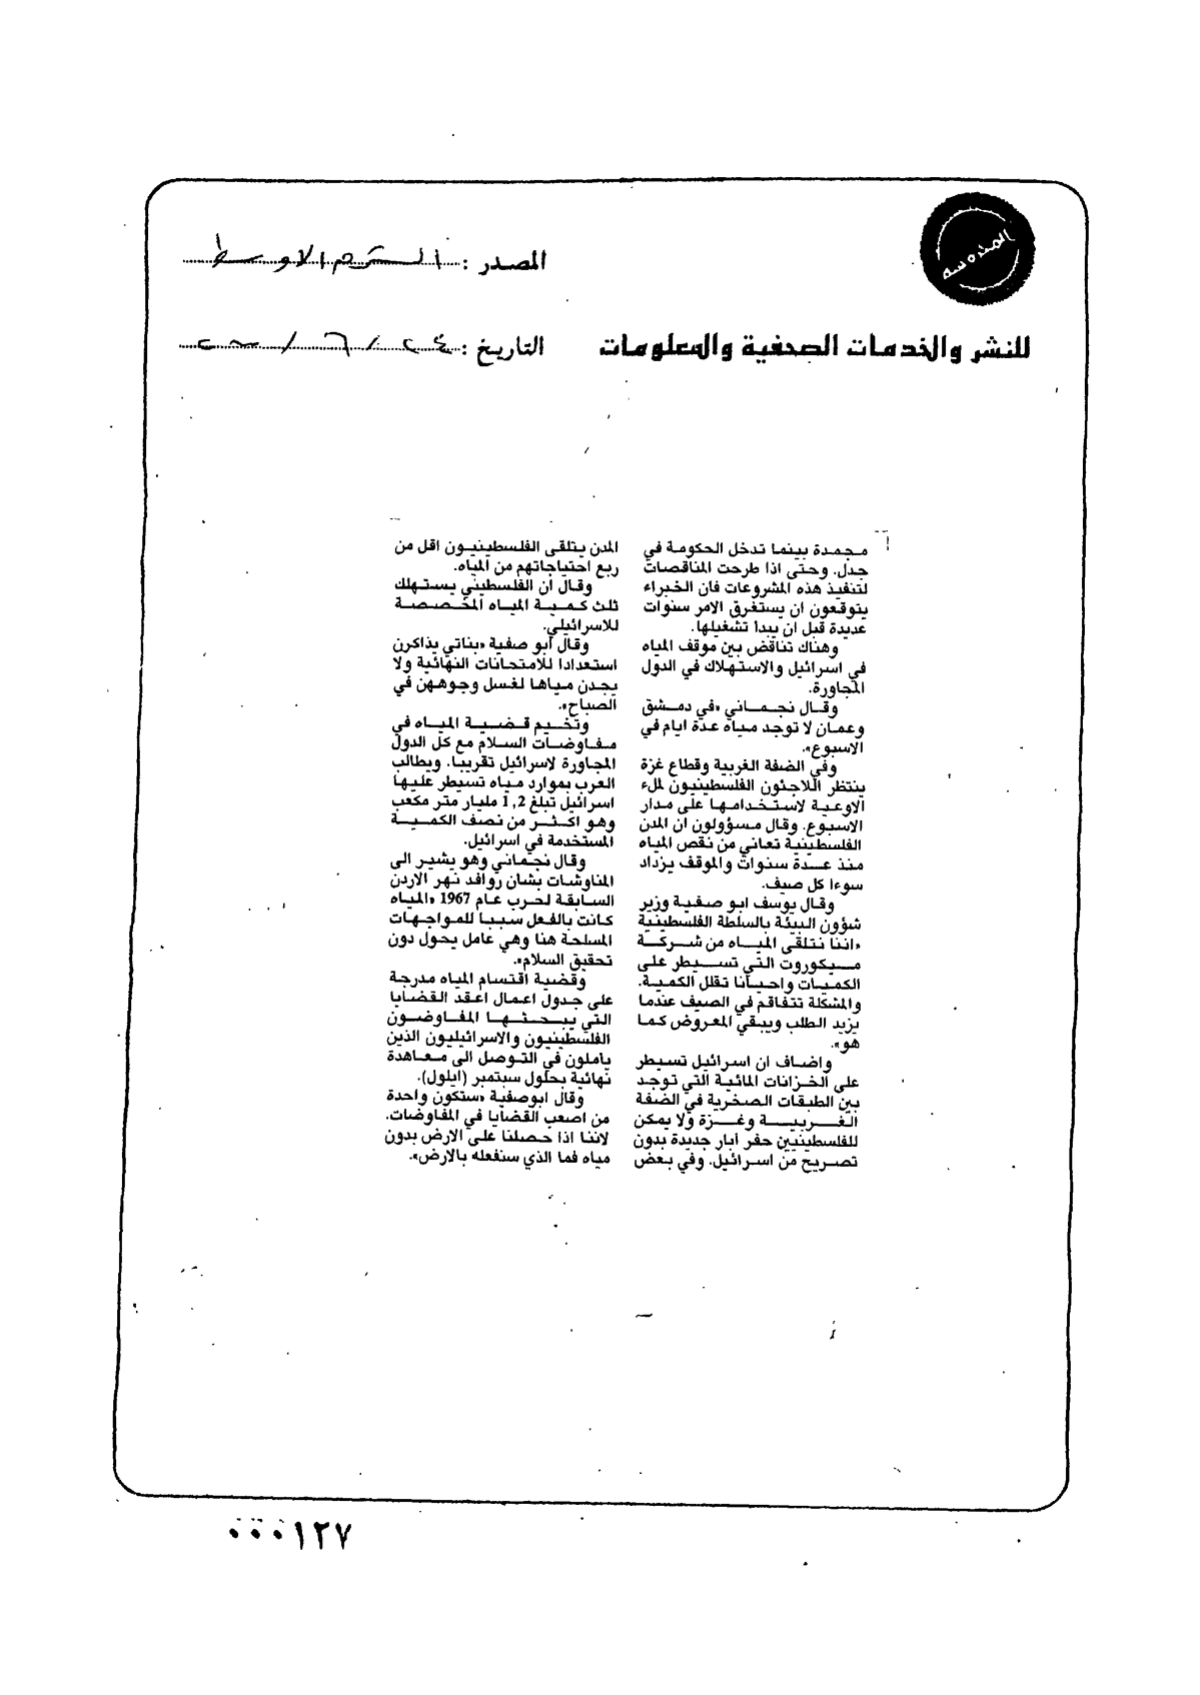 المصدر : الشرق الاوسط
للنشر والخدمات الصحفية والمعلومات
التاريخ : ٢٤ / ٦ /
مجمدة بينما تدخل الحكومة في
جدل. وحتى اذا طرحت المناقصات
لتنفيذ هذه المشروعات فان الخبراء
يتوقعون ان يستغرق الامر سنوات
عديدة قبل ان يبدا تشغيلها.
وهناك تناقض بين موقف المياه
في اسرائيل والاستهلاك في الدول
المجاورة.
وقال نجماني «في دمشق
وعمان لا توجد مياه عدة ايام في
الاسبوع».
وفي الضفة الغربية وقطاع غزة
ينتظر اللاجئون الفلسطينيون لملء
الاوعية لاستخدامها على مدار
الاسبوع. وقال مسؤولون ان المدن
الفلسطينية تعاني من نقص المياه
منذ عدة سنوات والموقف يزداد
سوءا كل صيف.
وقال يوسف ابو صفية وزير
شؤون البيئة بالسلطة الفلسطينية
«اننا نتلقى المياه من شركة
ميكوروت التي تسيطر على
الكميات واحيانا تقلل الكمية.
والمشكلة تتفاقم في الصيف عندما
يزيد الطلب ويبقي المعروض كما
هو».
واضاف ان اسرائيل تسيطر
على الخزانات المائية التي توجد
بين الطبقات الصخرية في الضفة
الغربية وغزة ولا يمكن
للفلسطينيين حفر آبار جديدة بدون
تصريح من اسرائيل. وفي بعض
المدن يتلقى الفلسطينيون اقل من
ربع احتياجاتهم من المياه.
وقال ان الفلسطيني يستهلك
ثلث كمية المياه المخصصة
للاسرائيلي.
وقال ابو صفية «بناتي يذاكرن
استعدادا للامتحانات النهائية ولا
يجدن مياها لغسل وجوههن في
الصباح».
وتخيم قضية المياه في
مفاوضات السلام مع كل الدول
المجاورة لاسرائيل تقريبا. ويطالب
العرب بموارد مياه تسيطر عليها
اسرائيل تبلغ 1,2 مليار متر مكعب
وهو اكثر من نصف الكمية
المستخدمة في اسرائيل.
وقال نجماني وهو يشير الى
المناوشات بشان روافد نهر الاردن
السابقة لحرب عام 1967 «المياه
كانت بالفعل سببا للمواجهات
المسلحة هنا وهي عامل يحول دون
تحقيق السلام».
وقضية اقتسام المياه مدرجة
على جدول اعمال اعقد القضايا
التي يبحثها المفاوضون
الفلسطينيون والاسرائيليون الذين
ياملون في التوصل الى معاهدة
نهائية بحلول سبتمبر (ايلول).
وقال ابوصفية «ستكون واحدة
من اصعب القضايا في المفاوضات.
لاننا اذا حصلنا على الارض بدون
مياه فما الذي سنفعله بالارض».
٠٠٠١٢٧